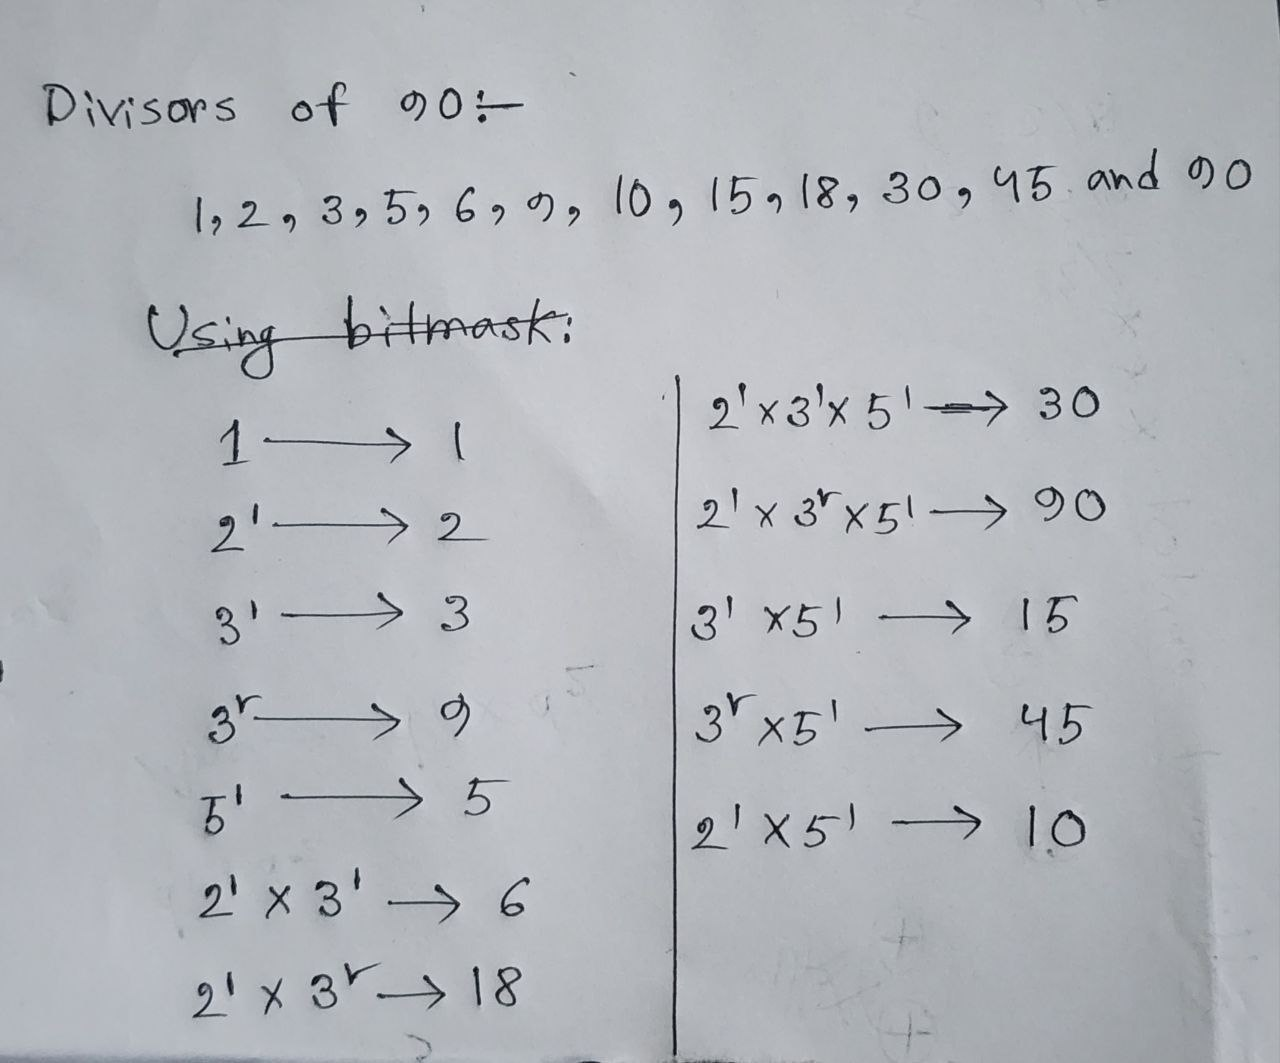 Divisors of 90:-
1, 2, 3, 5, 6, 9, 10, 15, 18, 30, 45 and 90
Using bitmask:
1 → 1
2¹ → 2
3¹ → 3
3² → 9
5¹ → 5
2¹ × 3¹ → 6
2¹ × 3² → 18
2¹ × 3¹ × 5¹ → 30
2¹ × 3² × 5¹ → 90
3¹ × 5¹ → 15
3² × 5¹ → 45
2¹ × 5¹ → 10